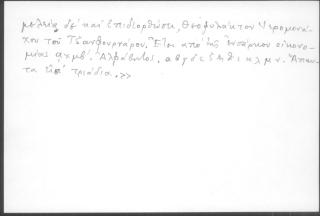 μελείᾳ δὲ καὶ ἐπιδιορθώσει, Θεοφυλάκτου Ἱερομονά-
χου τοῦ Τζανφουρνάρου. Ἔτει ἀπὸ τῆς ἐνσάρκου οἰκονο-
μίας αχμβ'. Ἀλφάβητος. α β γ δ ε ζ η θ ι κ λ μ ν. Ἅπαν-
τα τριάδια.>>